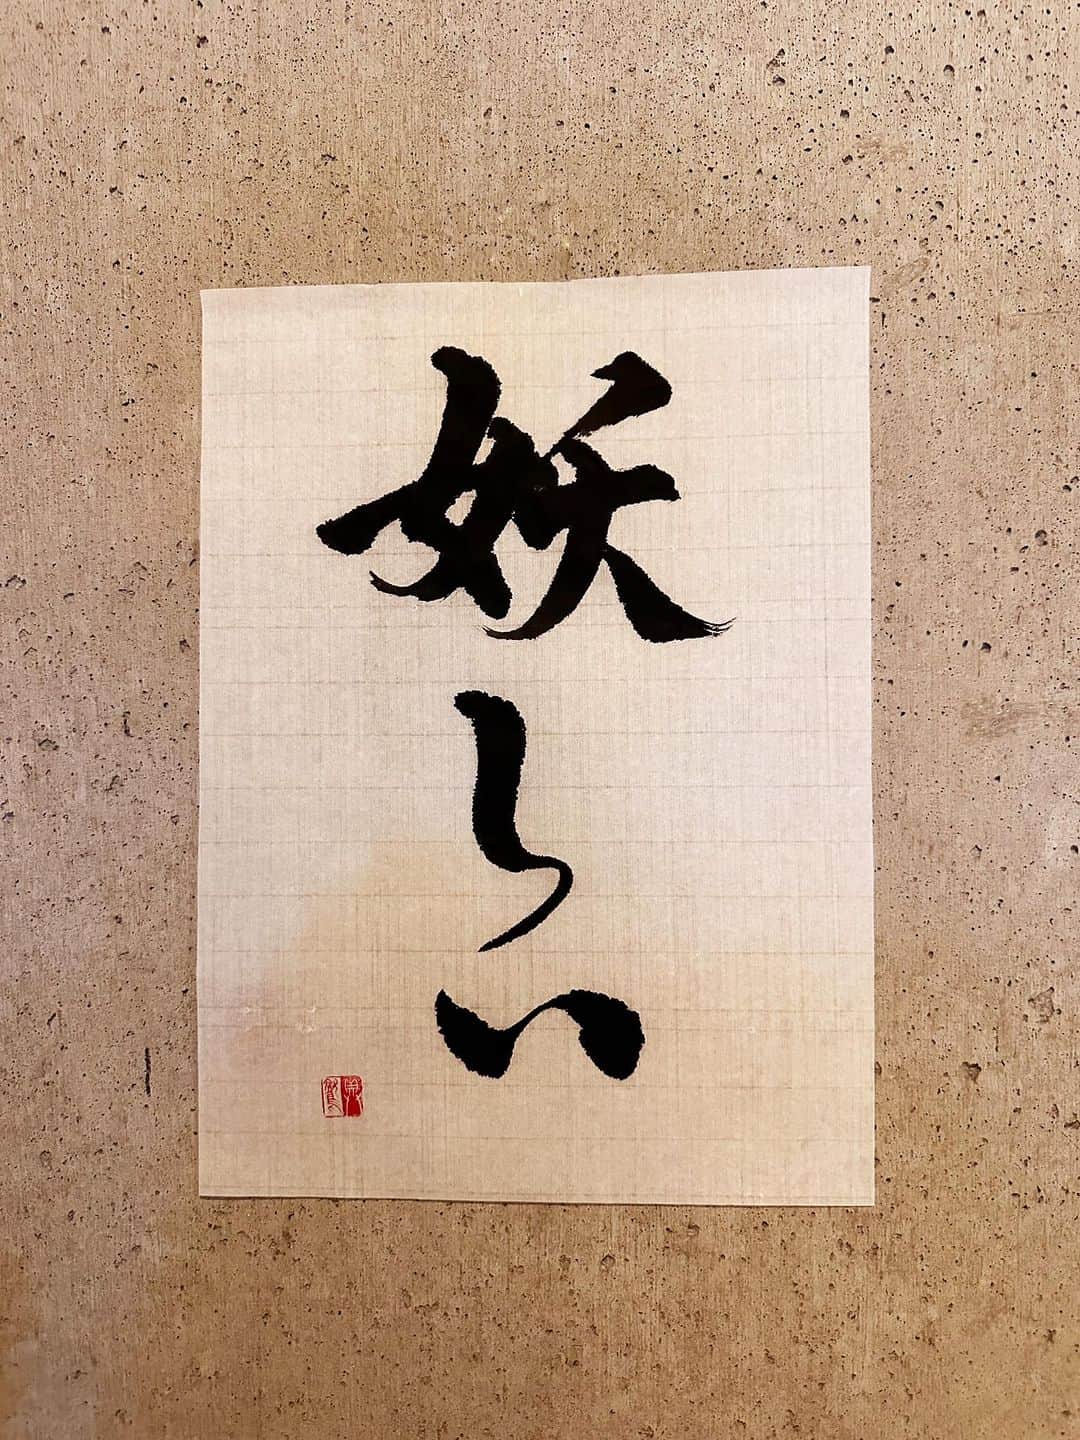 妖しい